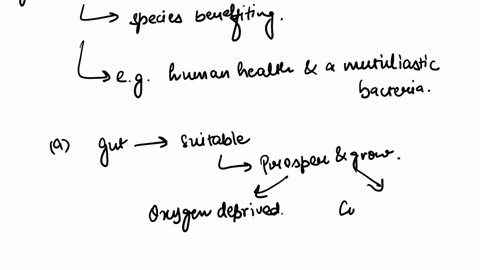 ↳ species benefiting.
↳ e.g. human health & a mutuliastic
bacteria.
(a) gut → suitable
↳ Prosper & grow.
Oxygen deprived. Co